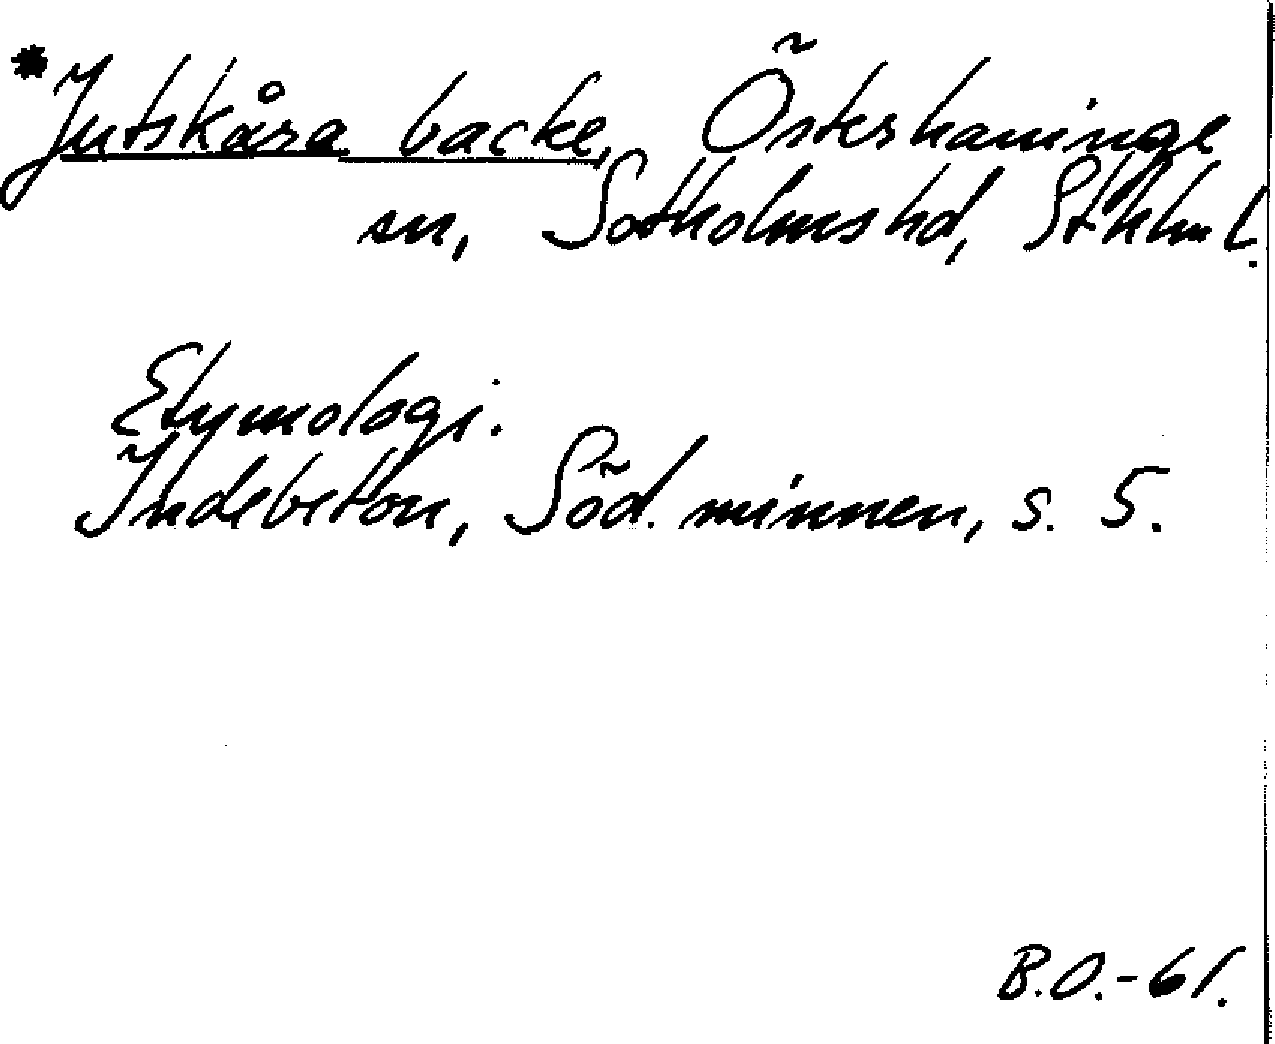 *Jutskåra backe, Österhaninge
sn, Sotholms hd, Sthlm l.
Etymologi.
Indebetou, Söd. minnen, s. 5.
B.O.-61.